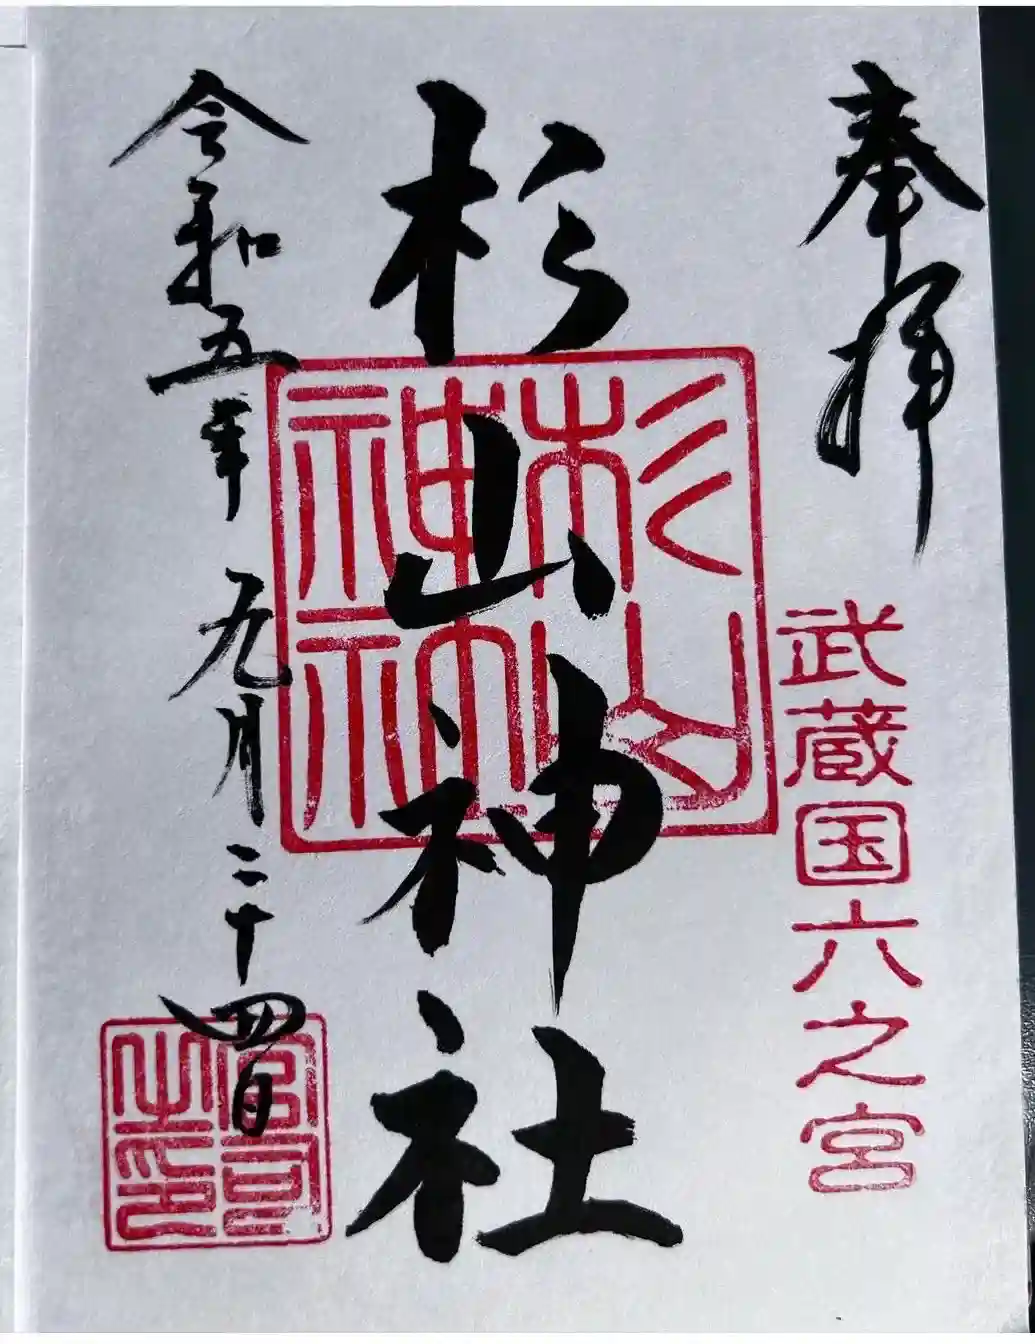 奉拝
武蔵国六之宮
杉山神社
杉山神社
令和五年九月二十四日
宮司之印